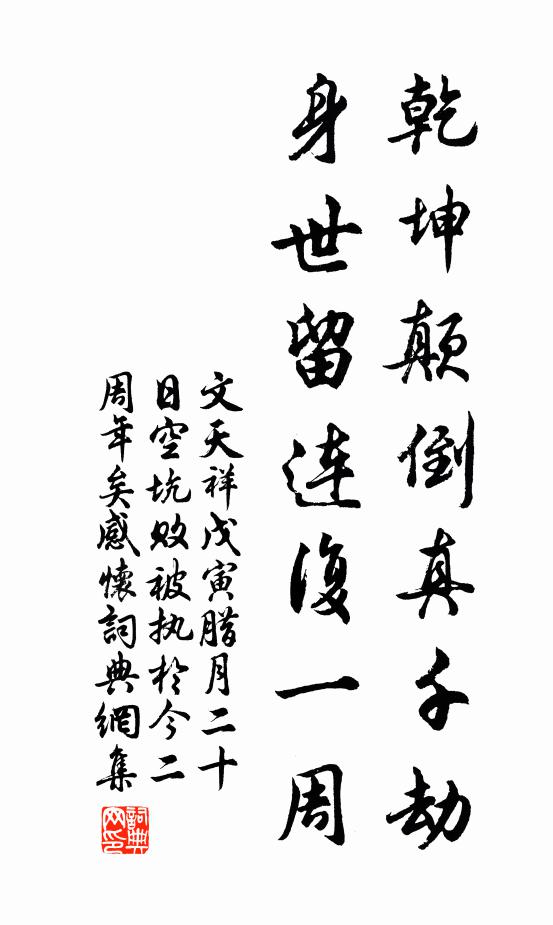 乾坤颠倒真千劫
身世留连復一周
文天祥戊寅腊月二十
日空坑败被执於今二
周年矣感懷詞典網集
詞典网印